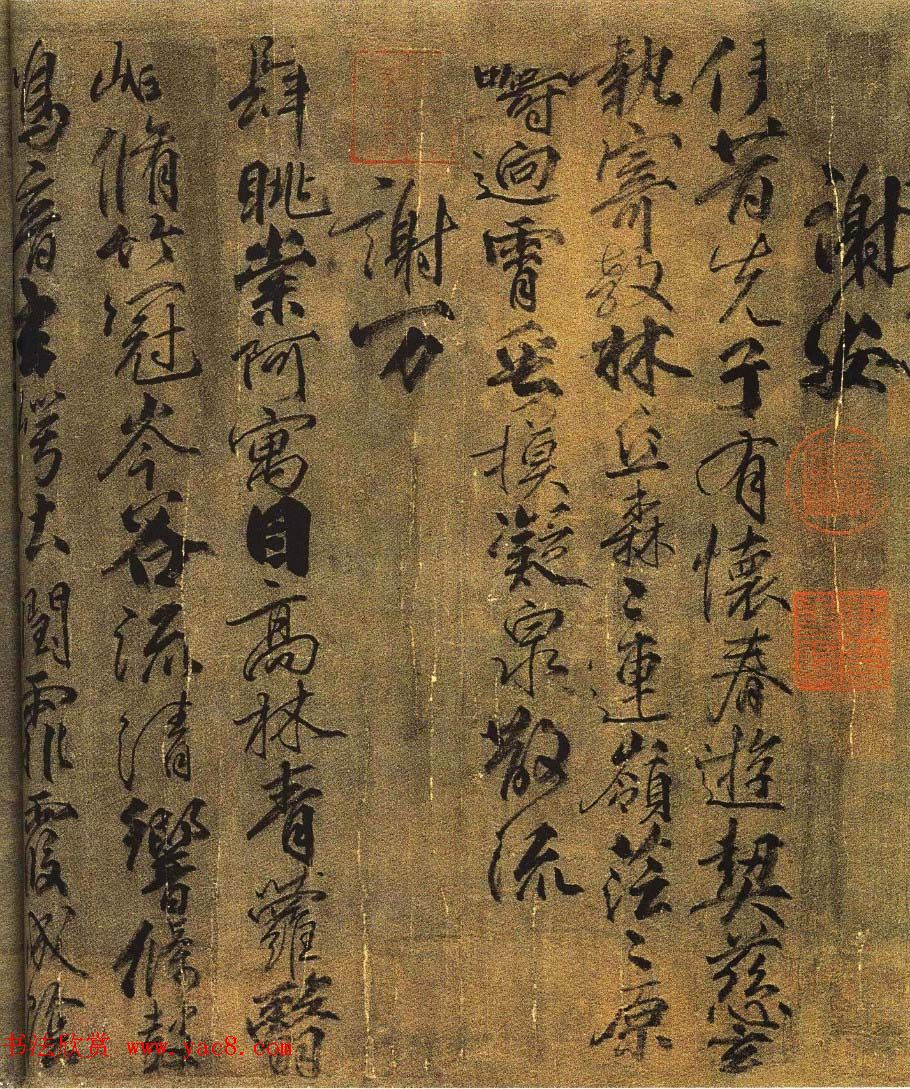 謝安
伊昔先子有懷春遊契慈言
執寄敖林丘森〻連嶺茫〻原
疇迥霄垂摸凝泉散流
謝万
肆眺崇阿寓目高林青蘿翳
岫脩竹冠岑谷流清響條鼓
鳴音玄崿吐閏霏霞成陰
书法欣赏 www.yac8.com